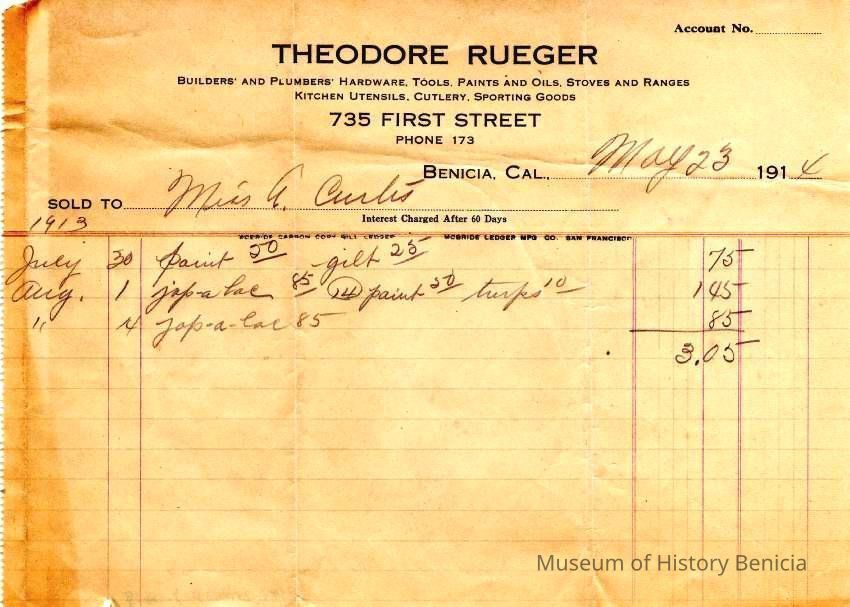 Account No.
THEODORE RUEGER
BUILDERS' AND PLUMBERS' HARDWARE, TOOLS, PAINTS AND OILS, STOVES AND RANGES
KITCHEN UTENSILS, CUTLERY, SPORTING GOODS
735 FIRST STREET
PHONE 173
BENICIA, CAL., May 23 1914
SOLD TO Miss A. Curtis
Interest Charged After 60 Days
1913
MCBRIDE CARBON COPY BILL LEDGER MCBRIDE LEDGER MFG CO. SAN FRANCISCO
July 30 paint 50 gilt 25 75
Aug. 1 jap-a-lac 85 paint 50 turps 10 1 45
" 4 jap-a-lac 85 85
3.05
Museum of History Benicia